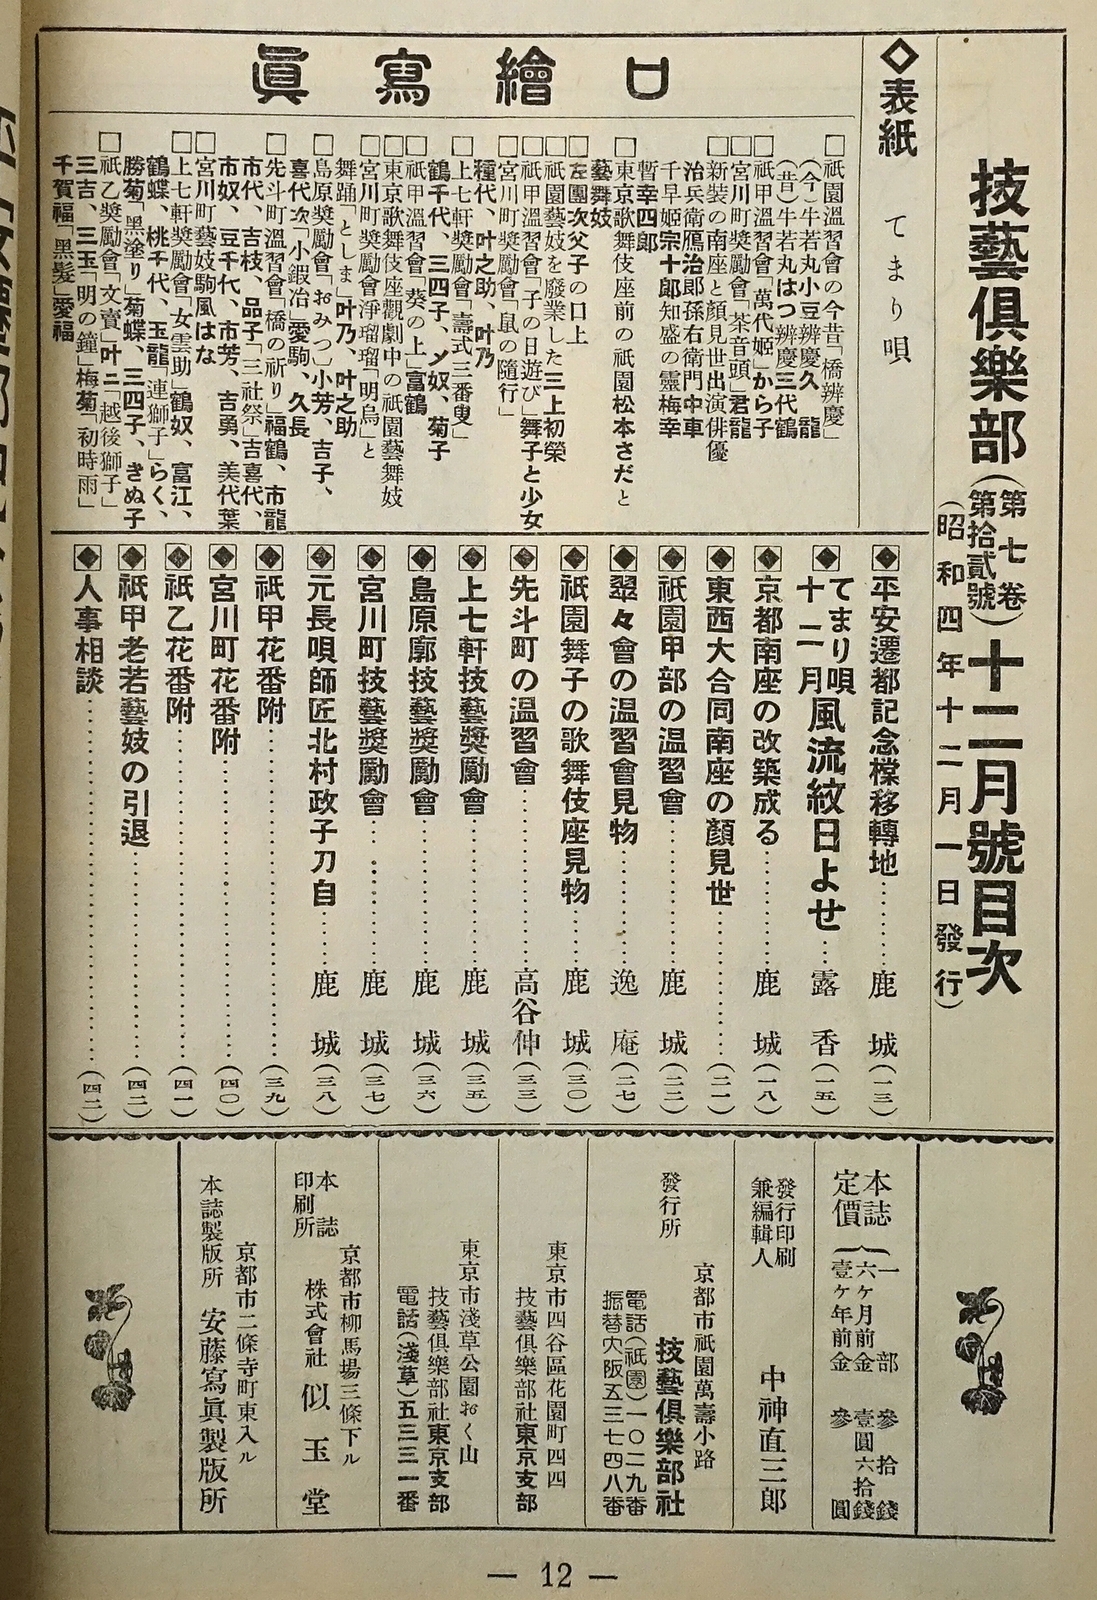 技藝倶樂部
(第七卷第拾貳號)
十二月號目次
(昭和四年十二月一日發行)
◇表紙 てまり唄
口繪寫眞
□祇園溫習會の今昔「橋辨慶」
(今)牛若丸小豆辨慶久龍
(昔)牛若丸はつ辨慶三代鶴
□祇甲溫習會「萬代姬」から子
□宮川町獎勵會「茶音頭」君龍
□新裝の南座と顏見世出演俳優
治兵衛鴈治郎孫右衛門中車
千早姬宗十郎知盛の靈梅幸
暫幸四郎
□東京歌舞伎座前の祇園松本さだと
藝舞妓
□左團次父子の口上
□祇園藝妓を廢業した三上初榮
□祇甲溫習會「子の日遊び」舞子と少女
□宮川町獎勵會「鼠の隨行」
種代、叶之助、叶乃
□上七軒獎勵會「壽式三番叟」
鶴千代、三四子、〆奴、菊子
□祇甲溫習會「葵の上」富鶴
□東京歌舞伎座觀劇中の祇園藝舞妓
□宮川町獎勵會淨瑠瑠「明烏」と
舞踊「としま」叶乃、叶之助
□島原獎勵會「おみつ」小芳、吉子、
喜代次「小鍛冶」愛駒、久長
□先斗町溫習會「橋の祈り」福鶴、市龍
市代、吉枝、品子「三社祭」吉喜代、
市奴、豆千代、市芳、吉勇、美代葉
□宮川町藝妓駒風はな
□上七軒獎勵會「女雲助」鶴奴、富江、
鶴蝶、桃千代、玉龍「連獅子」らく、
勝菊「黑塗り」菊蝶、三四子、きぬ子
□祇乙獎勵會「文賣」叶二「越後獅子」
三吉、三玉「明の鐘」梅菊「初時雨」
千賀福「黑髮」愛福
◆平安遷都記念樘移轉地………鹿城(一三)
◆てまり唄十二月風流紋日よせ…露香(一五)
◆京都南座の改築成る………鹿城(一八)
◆東西大合同南座の顏見世………(二一)
◆祇園甲部の溫習會………鹿城(二二)
◆翠々會の溫習會見物………逸庵(二七)
◆祇園舞子の歌舞伎座見物……鹿城(三〇)
◆先斗町の溫習會………高谷伸(三三)
◆上七軒技藝獎勵會………鹿城(三五)
◆島原廓技藝獎勵會………鹿城(三六)
◆宮川町技藝獎勵會………鹿城(三七)
◆元長唄師匠北村政子刀自……鹿城(三八)
◆祇甲花番附………(三九)
◆宮川町花番附………(四〇)
◆祇乙花番附………(四一)
◆祇甲老若藝妓の引退………(四二)
◆人事相談………(四二)
本誌定價
一部 參拾錢
六ヶ月前金 壹圓六拾錢
壹ヶ年前金 參圓
發行印刷兼編輯人 中神直三郎
發行所
京都市祇園萬壽小路
技藝倶樂部社
電話(祇園)一〇二九番
振替大阪五三七四八番
東京市四谷區花園町四四
技藝倶樂部社東京支部
東京市淺草公園おく山
技藝倶樂部社東京支部
電話(淺草)五三三一番
本誌印刷所
京都市柳馬場三條下ル
株式會社 似玉堂
本誌製版所
京都市二條寺町東入ル
安藤寫眞製版所
— 12 —